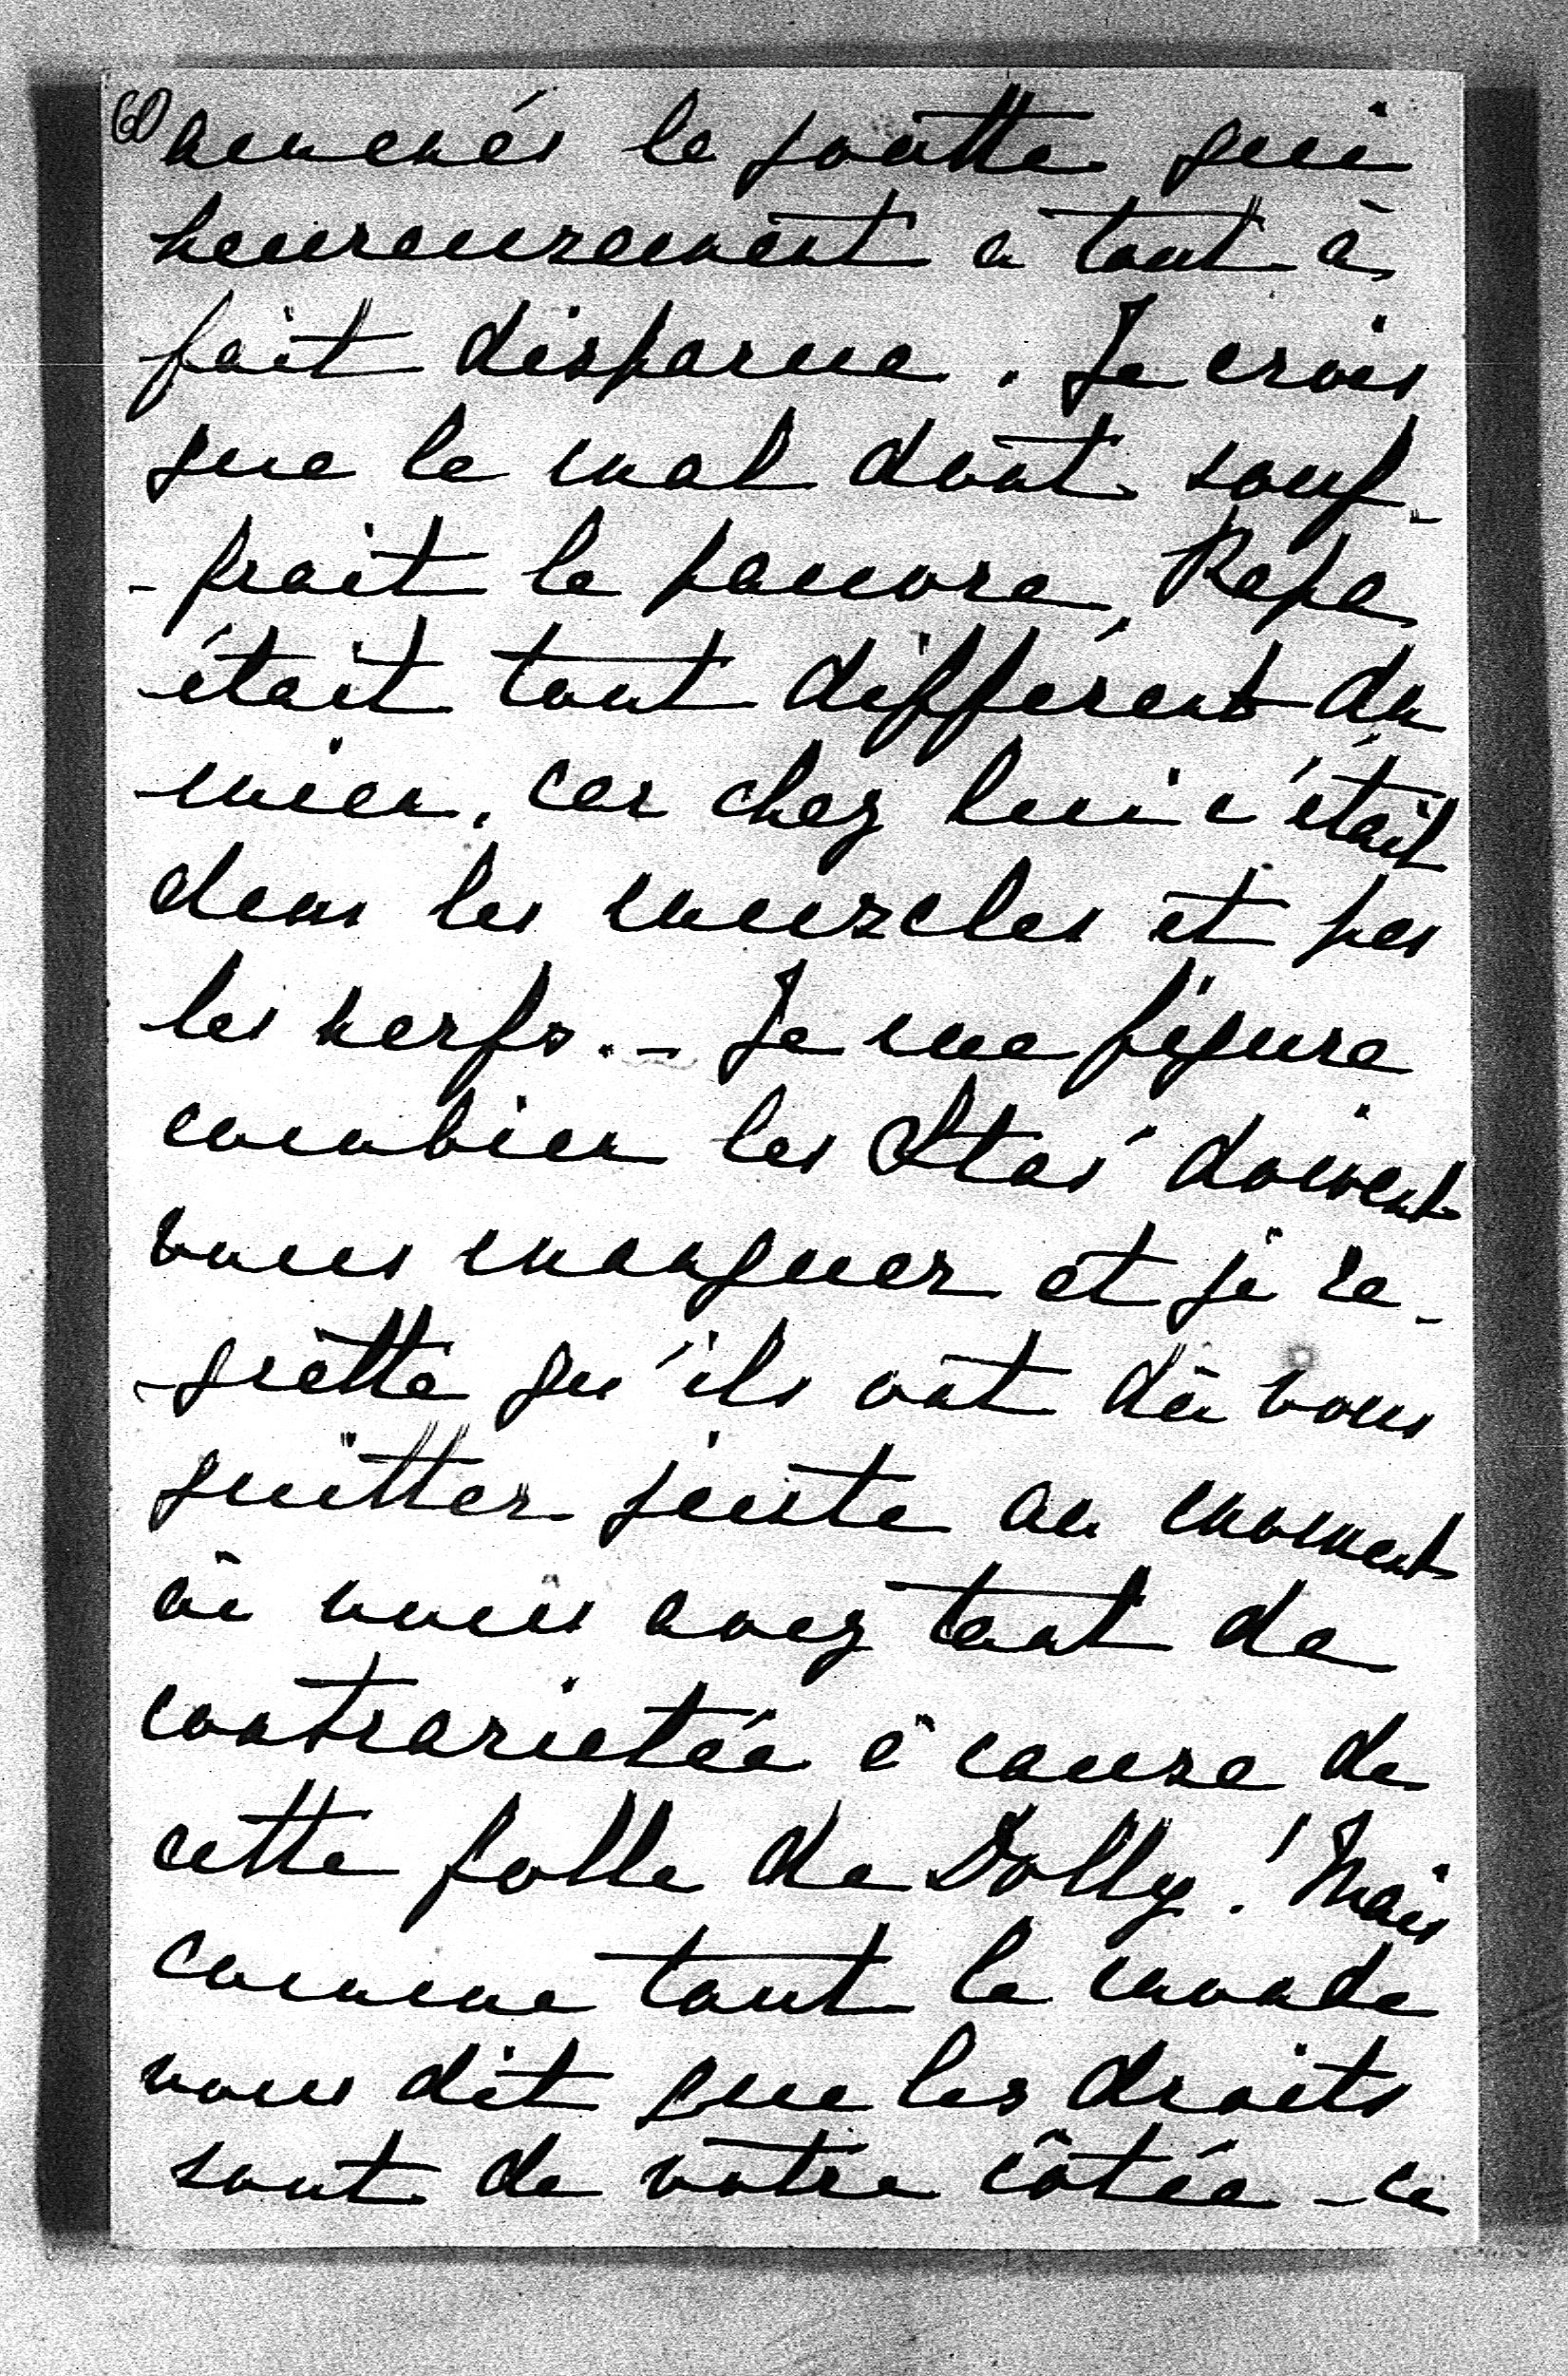 60 amenés la goutte qui
heureusement a tout à
fait disparue. Je crois
que le mal dont souf-
-frait le pauvre Papa
était tout différent du
mien, car chez lui c'était
dans les muscles et pas
les nerfs. – Je me figure
combien les Stas' doivent
vous manquer et je re-
-grette qu'ils ont dû vous
quitter juste au moment
où vous avez tant de
contrarietée à cause de
cette folle de Dolly! Mais
comme tout le monde
vous dit que les droits
sont de votre côtée – ce